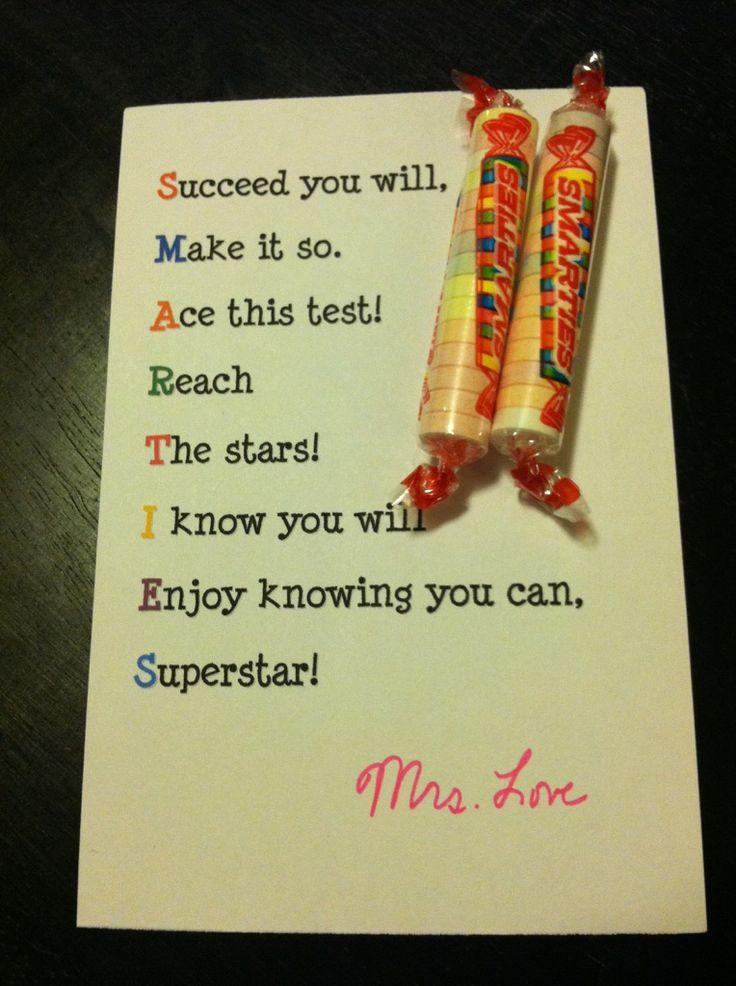 Succeed you will,
Make it so.
Ace this test!
Reach
The stars!
I know you will
Enjoy knowing you can,
Superstar!
Mrs. Love
SMARTIES
SMARTIES